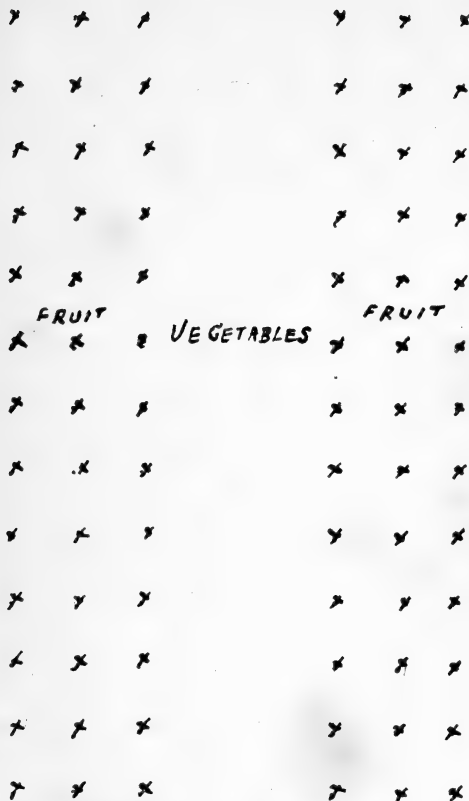 FRUIT
VEGETABLES
FRUIT